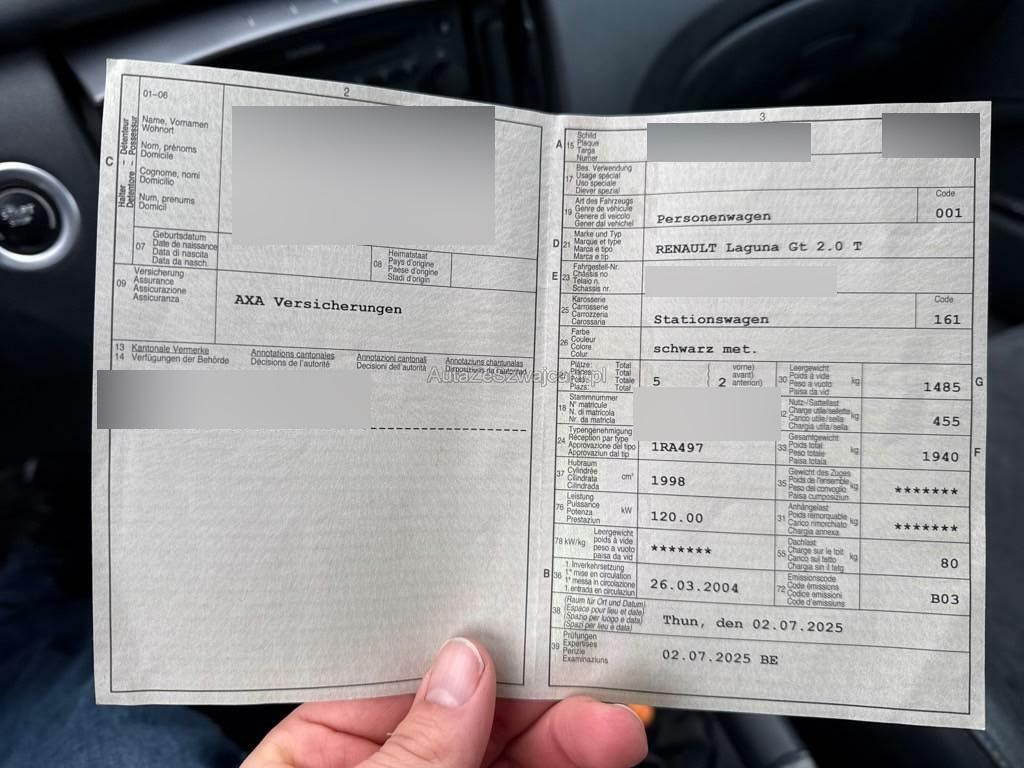 2
01-06
C
Halter – Détenteur
Detentore – Possessur
Name, Vornamen
Wohnort
Nom, prénoms
Domicile
Cognome, nomi
Domicilio
Num, prenums
Domicil
07
Geburtsdatum
Date de naissance
Data di nascita
Data da nasch.
08
Heimatstaat
Pays d'origine
Paese d'origine
Stadi d'origin
09
Versicherung
Assurance
Assicurazione
Assicuranza
AXA Versicherungen
13 Kantonale Vermerke
14 Verfügungen der Behörde
Annotations cantonales
Décisions de l'autorité
Annotazioni cantonali
Decisioni dell'autorità
Annotaziuns chantunalas
Disposiziuns da l'autoritad
AutaZeSzwajcarii.pl
3
A
15
Schild
Plaque
Targa
Numer
17
Bes. Verwendung
Usage spécial
Uso speciale
Diever spezial
19
Art des Fahrzeugs
Genre de véhicule
Genere di veicolo
Gener dal vehichel
Personenwagen
Code
001
D
21
Marke und Typ
Marque et type
Marca e tipo
Marca e tip
RENAULT Laguna Gt 2.0 T
E
23
Fahrgestell-Nr.
Châssis no
Telaio n.
Schassis nr.
25
Karosserie
Carrosserie
Carrozzeria
Carossaria
Stationswagen
Code
161
26
Farbe
Couleur
Colore
Colur
schwarz met.
Plätze: Total
Places: Total
Posti: Totale
Plazs: Total
5
( 2
vorne)
avant)
anteriori)
30
Leergewicht
Poids à vide
Peso a vuoto
Paisa da vid
kg
1485
G
18
Stammnummer
N° matricule
N. di matricola
Nr. da matricla
Nutz-/Sattellast
Charge utile/sellette
Carico utile/sella
Chargia utila/sella
kg
455
24
Typengenehmigung
Réception par type
Approvazione del tipo
Approvaziun dal tip
1RA497
33
Gesamtgewicht
Poids total
Peso totale
Paisa totala
kg
1940
F
37
Hubraum
Cylindrée
Cilindrata
Cilindrada
cm³
1998
35
Gewicht des Zuges
Poids de l'ensemble
Peso del convoglio
Paisa cumposiziun
kg
*******
76
Leistung
Puissance
Potenza
Prestaziun
kW
120.00
31
Anhängelast
Poids remorquable
Carico rimorchiato
Chargia annexa
kg
*******
78 kW/kg
Leergewicht
poids à vide
peso a vuoto
paisa da vid
*******
55
Dachlast
Charge sur le toit
Carico sul tetto
Chargia sin il tetg
kg
80
B
36
1. Inverkehrsetzung
1re mise en circulation
1a messa in circolazione
1. entrada en circulaziun
26.03.2004
72
Emissionscode
Code émissions
Codice emissioni
Code d'emissiuns
B03
38
(Raum für Ort und Datum)
(Espace pour lieu et date)
(Spazio per luogo e data)
(Spazi per lieu e data)
Thun, den 02.07.2025
39
Prüfungen
Expertises
Perizie
Examinaziuns
02.07.2025 BE